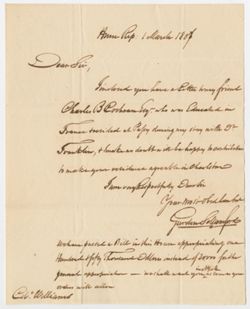 House Rep. 1 March 1807
Dear Sir,
Inclosed you have a letter to my friend
Charles B Cochran Esq. who was Educated in
France & resided at Passy during my stay with Dr
Franklin, & I make no doubt will be happy to contribute
to make your residence agreeable in Charleston
I am very Respectfully Dear Sir
Your Most Obed
We have passed a Bill in this House appropriating one
Hundred & fifty Thousand Dollars instead of 20000 for the
general appropriation — we shall as soon as your
orders will allow
Col. Williams